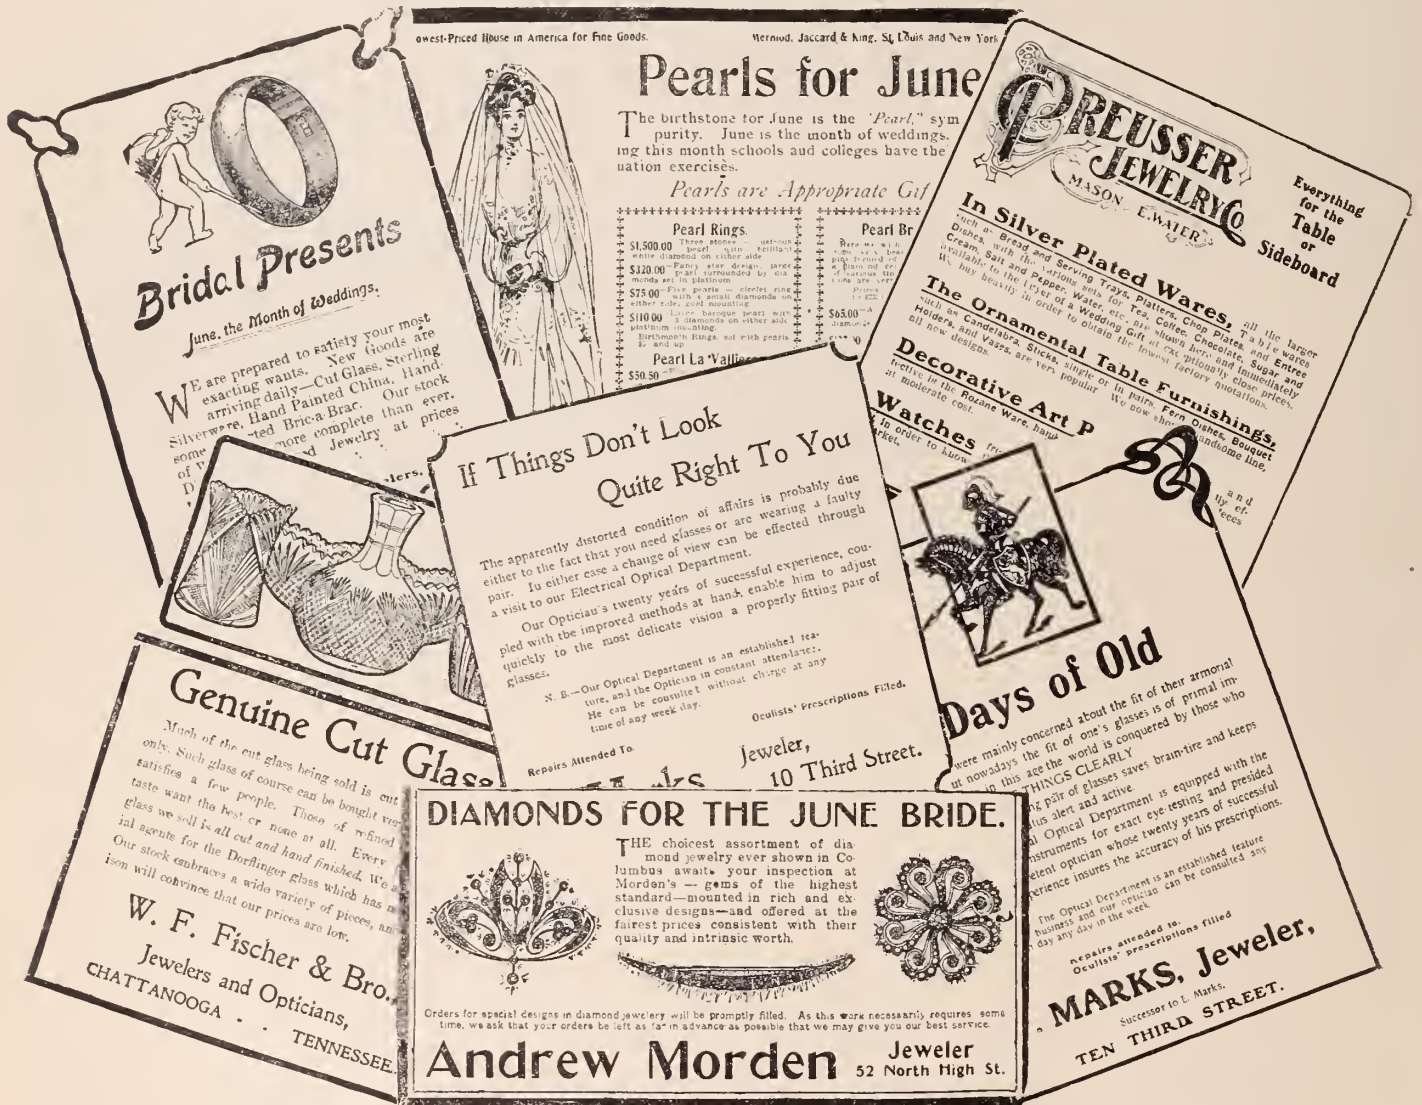 Bridal Presents
June, the Month of Weddings.
WE are prepared to satisfy your most
exacting wants. New Goods are
arriving daily—Cut Glass, Sterling
Silverware, Hand Painted China, Hand-
some ted Bric-a-Brac. Our stock
of more complete than ever.
D d Jewelry at prices
lers.
owest-Priced House in America for Fine Goods.
Mermod, Jaccard & King, St. Louis and New York
Pearls for June
The birthstone for June is the "Pearl," sym
purity. June is the month of weddings.
ing this month schools and colleges have the
uation exercises.
Pearls are Appropriate Gif
Pearl Rings.
$1,500.00 Three stones — lustrous
pearl with brilliant
white diamond on either side
$320.00—Fancy star design, large
pearl surrounded by dia-
monds set in platinum
$75.00—Five pearls — circlet ring
with 4 small diamonds on
either side, gold mounting
$110.00—Large baroque pearl with
3 diamonds on either side
platinum mounting.
Birthmonth Rings, set with pearls
and up
Pearl La Valliere
$50.50
Pearl Br
$65.00—A
diamonds
PREUSSER
JEWELRY CO.
MASON E. WATER
Everything
for the
Table
or
Sideboard
In Silver Plated Wares, all the larger
such as Bread and Serving Trays, Platters, Chop Plates, and Entree
Dishes, with the various sets for Tea, Coffee, Chocolate, Sugar and
Cream, Salt and Pepper, Water, etc., are shown here and immediately
available to the buyer of a Wedding Gift at exceptionally close prices.
We buy heavily in order to obtain the lowest factory quotations.
The Ornamental Table Furnishings,
such as Candelabra, Sticks, single or in pairs, Fern Dishes, Bouquet
Holders, and Vases, are very popular. We now show a handsome line,
all new designs.
Decorative Art P
fective is the Rozane Ware, hand
at moderate cost.
Watches
in order to know
arket.
and
ly ef-
ieces
If Things Don't Look
Quite Right To You
The apparently distorted condition of affairs is probably due
either to the fact that you need glasses or are wearing a faulty
pair. In either case a change of view can be effected through
a visit to our Electrical Optical Department.
Our Optician's twenty years of successful experience, cou-
pled with the improved methods at hand, enable him to adjust
quickly to the most delicate vision a properly fitting pair of
glasses.
N. B.—Our Optical Department is an established fea-
ture, and the Optician in constant attendance.
He can be consulted without charge at any
time of any week day.
Oculists' Prescriptions Filled.
Repairs Attended To.
Marks
Jeweler,
10 Third Street.
Days of Old
were mainly concerned about the fit of their armorial
ut nowadays the fit of one's glasses is of primal im-
in this age the world is conquered by those who
THINGS CLEARLY
ng pair of glasses saves brain-tire and keeps
us alert and active.
l Optical Department is equipped with the
nstruments for exact eye-testing and presided
etent optician whose twenty years of successful
erience insures the accuracy of his prescriptions.
The Optical Department is an established feature
business and our optician can be consulted any
day any day in the week
Repairs attended to.
Oculists' prescriptions filled
. MARKS, Jeweler,
Successor to L. Marks,
TEN THIRD STREET.
Genuine Cut Glass
Much of the cut glass being sold is cut
only. Such glass of course can be bought ver
satisfies a few people. Those of refined
taste want the best or none at all. Every
glass we sell is all cut and hand finished. We a
ial agents for the Dorflinger glass which has n
Our stock embraces a wide variety of pieces, and
ison will convince that our prices are low.
W. F. Fischer & Bro.,
Jewelers and Opticians,
CHATTANOOGA - - TENNESSEE.
DIAMONDS FOR THE JUNE BRIDE.
THE choicest assortment of dia-
mond jewelry ever shown in Co-
lumbus awaits your inspection at
Morden's — gems of the highest
standard—mounted in rich and ex-
clusive designs—and offered at the
fairest prices consistent with their
quality and intrinsic worth.
Orders for special designs in diamond jewelery will be promptly filled. As this work necessarily requires some
time, we ask that your orders be left as far in advance as possible that we may give you our best service.
Andrew Morden
Jeweler
52 North High St.